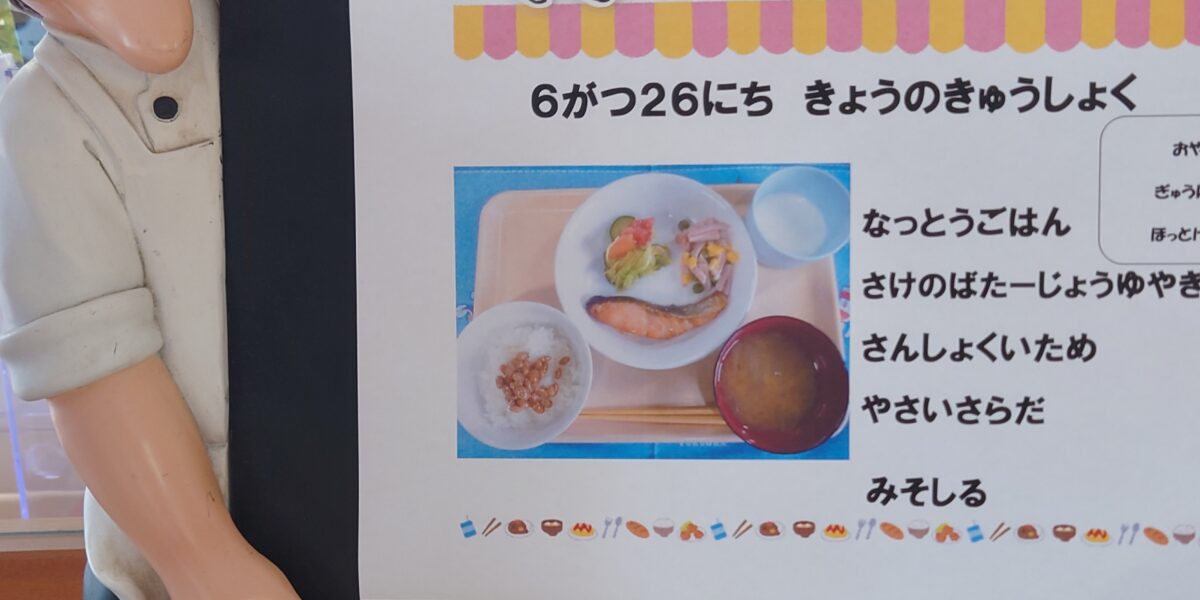 6がつ26にち きょうのきゅうしょく
なっとうごはん
さけのばたーじょうゆやき
さんしょくいため
やさいさらだ
みそしる
おや
ぎゅう
ほっと